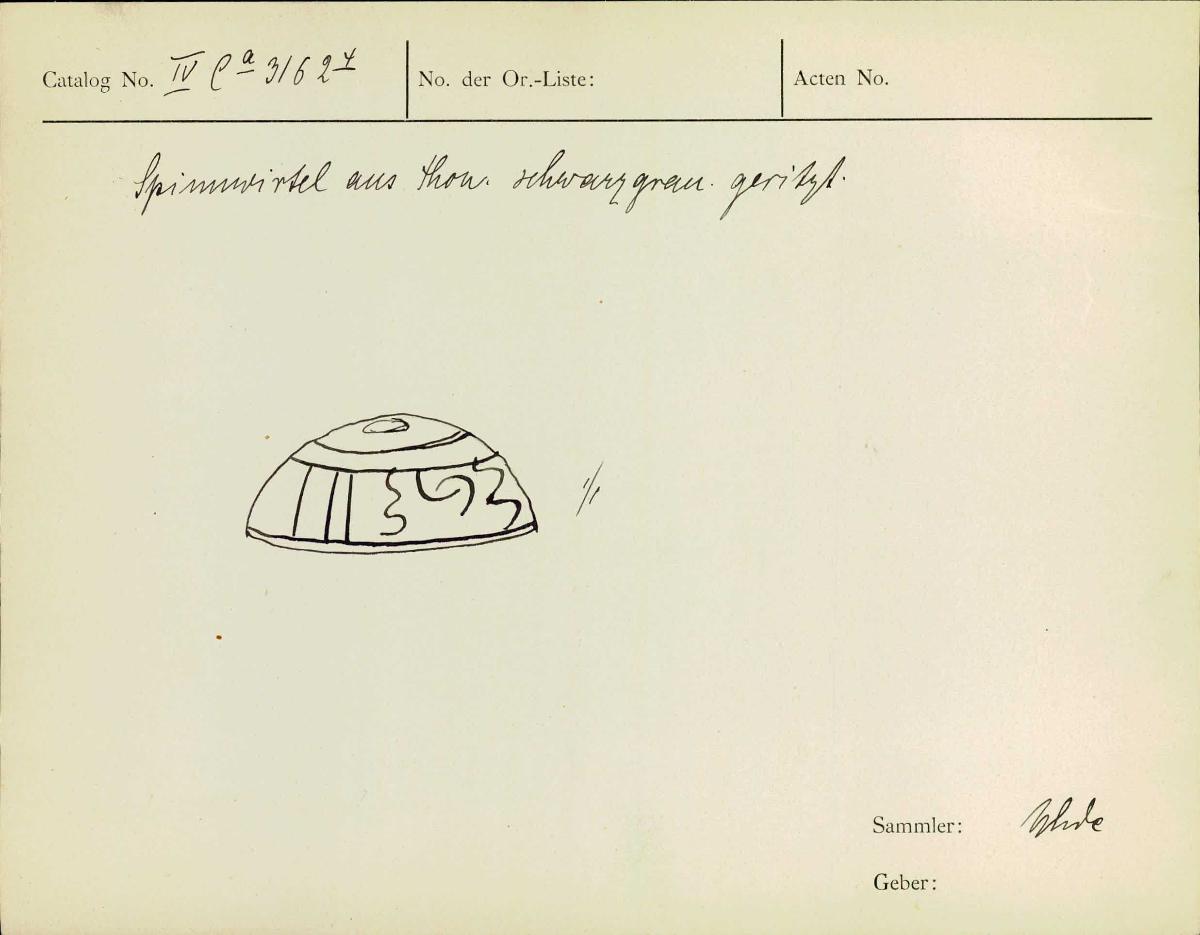 Catalog No. IV Ca 31624 No. der Or.-Liste: Acten No.
Spinnwirtel aus Thon. schwarzgrau. geritzt.
1/1
Sammler: Uhde
Geber: